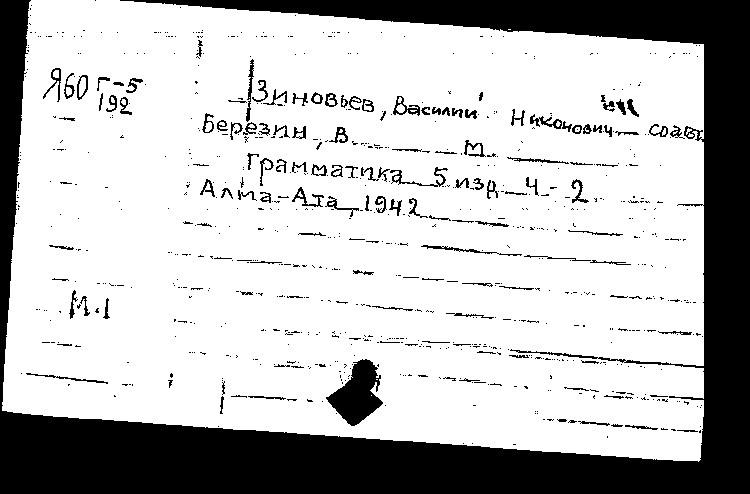 Я60 Г-5
192
Зиновьев, Василий Никонович соавт.
Березин, В. М.
Грамматика 5 изд ч-2
Алма-Ата, 1942
М.1